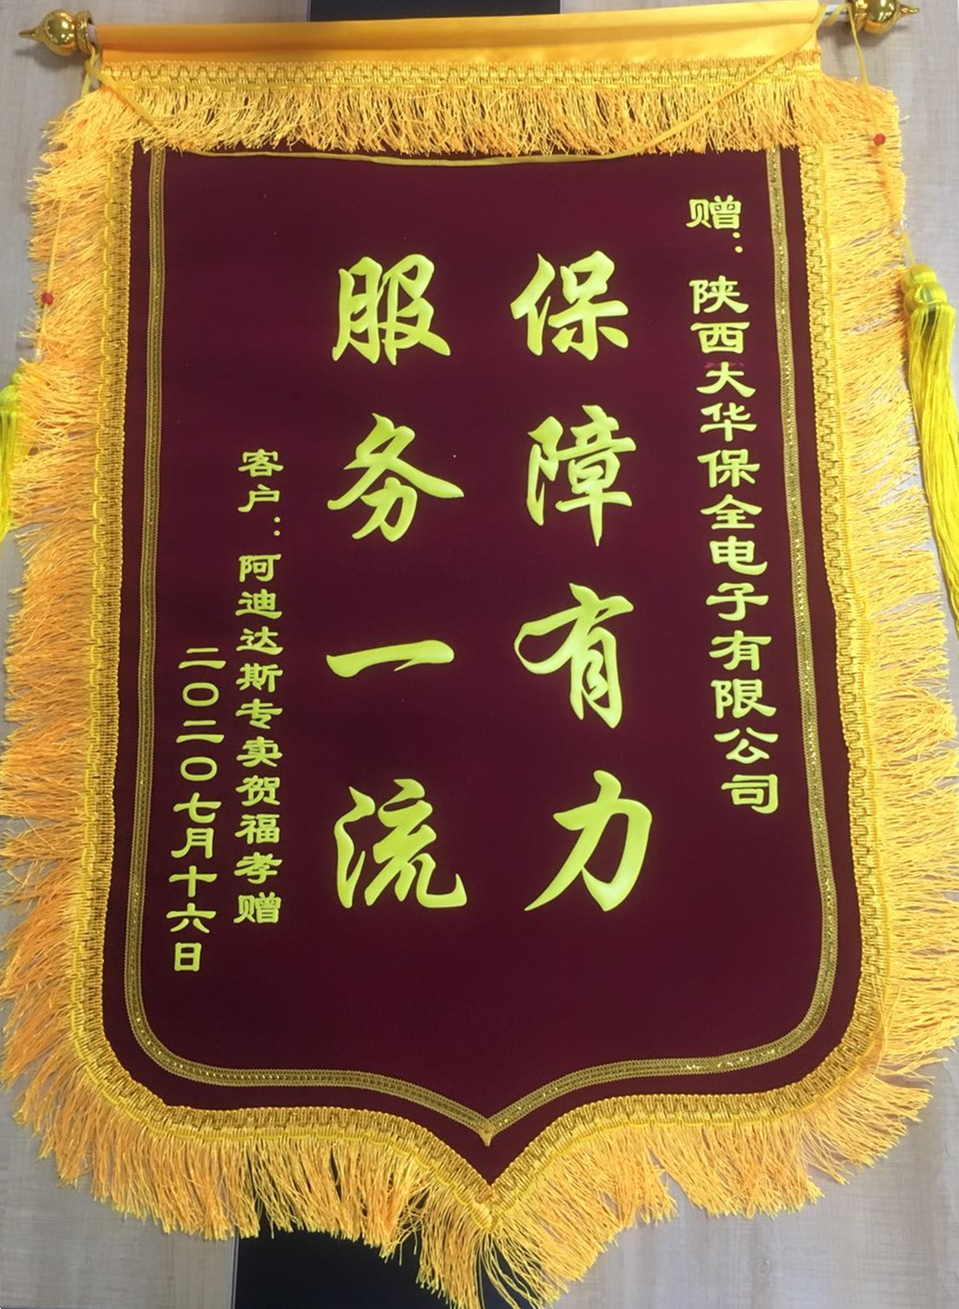 赠：陕西大华保全电子有限公司
保障有力
服务一流
客户：阿迪达斯专卖贺福孝赠
二〇二〇七月十六日